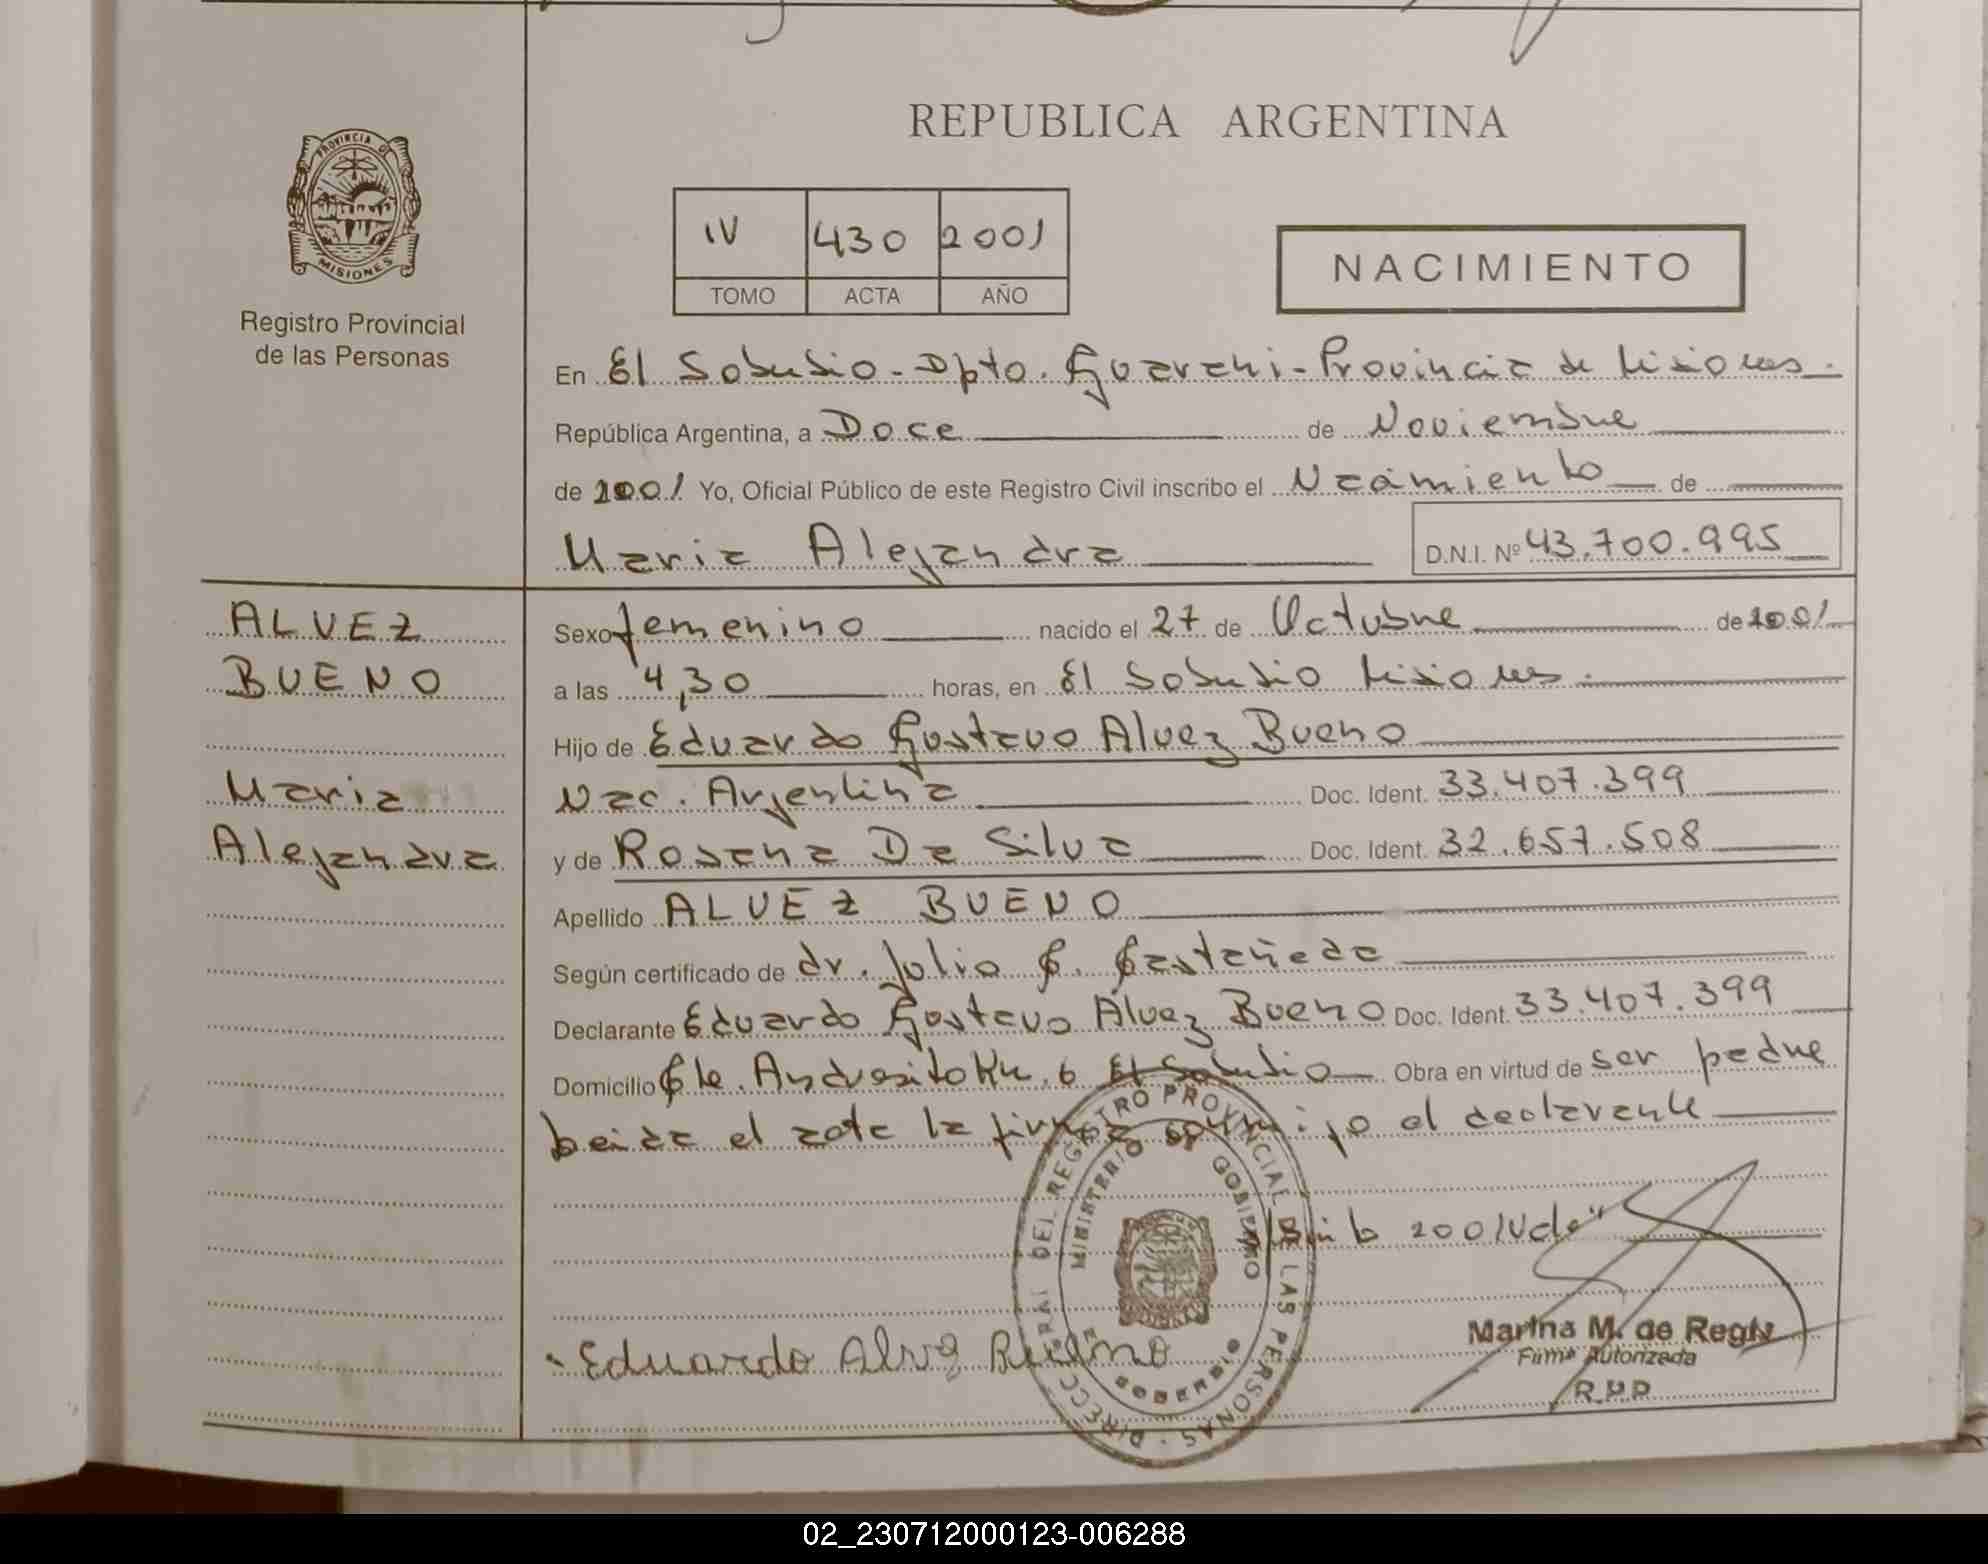 REPUBLICA ARGENTINA
PROVINCIA DE
MISIONES
Registro Provincial
de las Personas
IV 430 2001
TOMO ACTA AÑO
NACIMIENTO
En El Soberbio - Dpto. Guarani - Provincia de Misiones.
República Argentina, a Doce de Noviembre
de 2001 Yo, Oficial Público de este Registro Civil inscribo el Nacimiento de
Maria Alejandra D.N.I. Nº 43.700.995
ALVEZ
BUENO
Maria
Alejandra
Sexo femenino nacido el 27 de Octubre de 2001
a las 4,30 horas, en El Soberbio Misiones.
Hijo de Eduardo Gustavo Alvez Bueno
Nac. Argentina Doc. Ident. 33.407.399
y de Rosana Da Silva Doc. Ident. 32.657.508
Apellido ALVEZ BUENO
Según certificado de dr. Julio C. Castañeda
Declarante Eduardo Gustavo Alvez Bueno Doc. Ident. 33.407.399
Domicilio Cle. Andresito Km. 6 El Soberbio Obra en virtud de ser padre
Leida el acta la firma conmigo el declarante
2001 Vale"
Eduardo Alvez Bueno
DIRECC. GRAL DEL REGISTRO PROVINCIAL DE LAS PERSONAS
MINISTERIO DE GOBIERNO
SOBERBIO
Marina M. de Regly
Firma Autorizada
R.P.P.
02_230712000123-006288